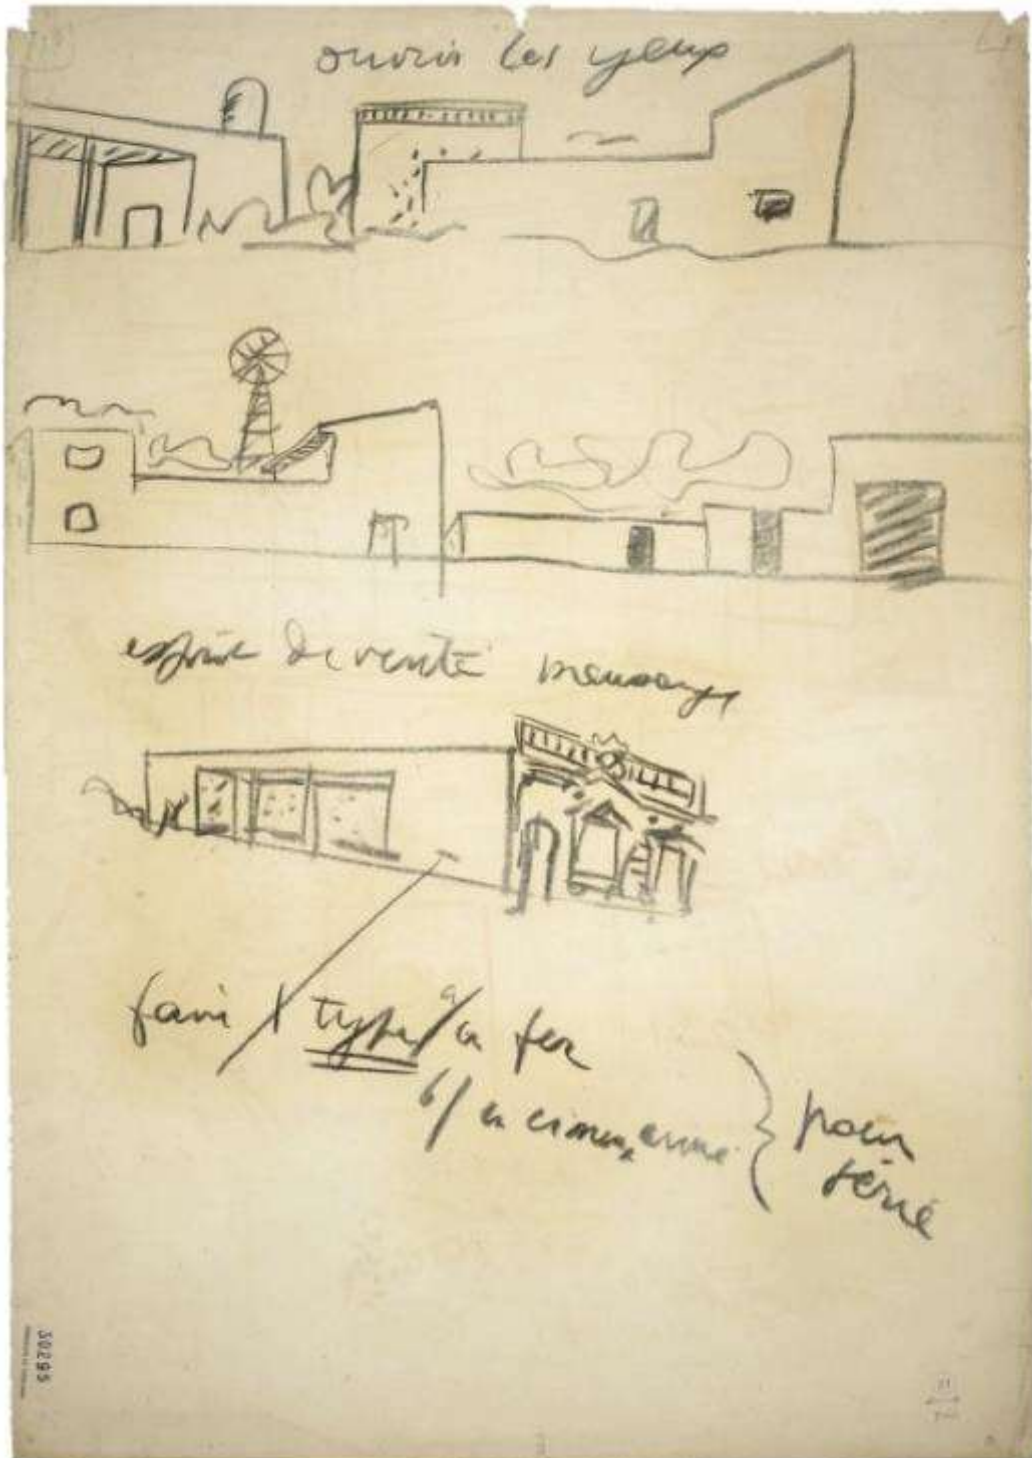 ouvrir les yeux
esprit de vérité mensonge
faire 1 type a/ en fer
b/ en ciment armé } pour
série
30295